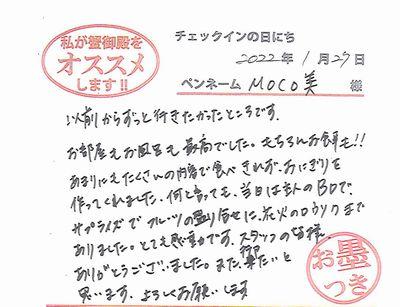 私が蟹御殿を
オススメ
します!!
チェックインの日にち
2022年 1月27日
ペンネーム MOCO美 様
以前からずっと行きたかったところです。
お部屋もお風呂も最高でした。もちろんお食事も!!
あまりにもたくさんの内容で食べきれず、おにぎりを
作ってくれました。何と言っても、当日は主人のBDで、
サプライズでフルーツの盛り合せに、花火のロウソクまで
ありました。とても感動です。スタッフの皆様
ありがとうございました。また、来たいと
思います。よろしくお願いします
お墨
つき